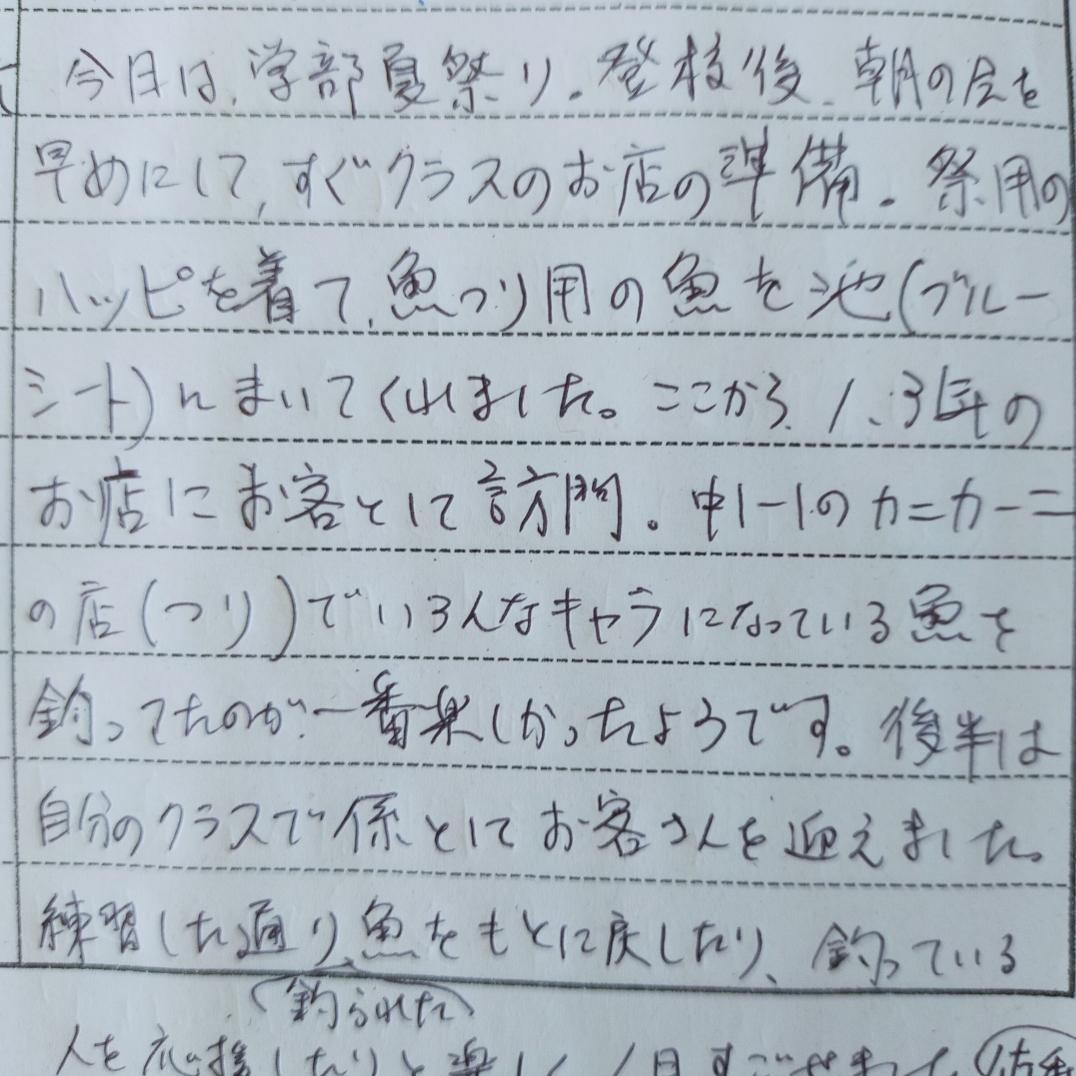 今日は、学部夏祭り。登校後、朝の会を
早めにして、すぐクラスのお店の準備。祭用の
ハッピを着て、魚つり用の魚を池(ブルー
シート)にまいてくれました。ここから、1、3年の
お店にお客として訪問。中1-1のカニカーニ
の店(つり)でいろんなキャラになっている魚を
釣ってたのが、一番楽しかったようです。後半は
自分のクラスで係としてお客さんを迎えました。
練習した通り、魚をもとに戻したり、釣っている
(釣られた)
人を応援したりと楽しく1日すごせました